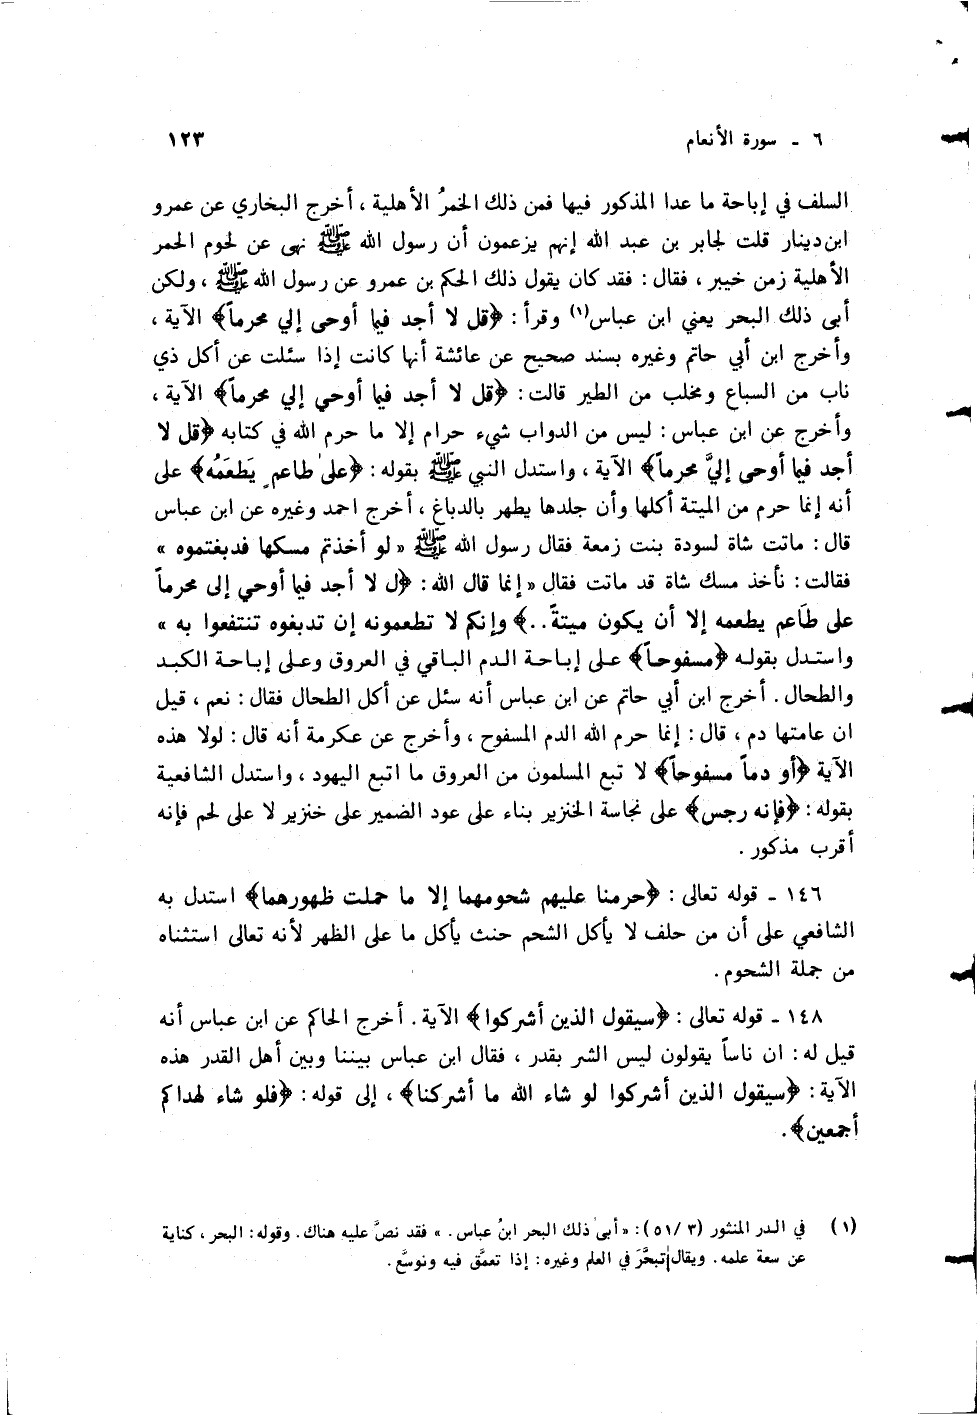 ٦ ـ سورة الأنعام ١٢٣
السلف في إباحة ما عدا المذكور فيها فمن ذلك الخمرُ الأهلية ، أخرج البخاري عن عمرو
ابن دينار قلت لجابر بن عبد الله إنهم يزعمون أن رسول الله ﷺ نهى عن لحوم الحمر
الأهلية زمن خيبر ، فقال : فقد كان يقول ذلك الحكم بن عمرو عن رسول الله ﷺ ، ولكن
أبى ذلك البحر يعني ابن عباس(١) وقرأ : ﴿قل لا أجد فيما أوحى إلي محرماً﴾ الآية ،
وأخرج ابن أبي حاتم وغيره بسند صحيح عن عائشة أنها كانت إذا سئلت عن أكل ذي
ناب من السباع ومخلب من الطير قالت : ﴿قل لا أجد فيما أوحي إلي محرماً﴾ الآية ،
وأخرج عن ابن عباس : ليس من الدواب شيء حرام إلا ما حرم الله في كتابه ﴿قل لا
أجد فيما أوحى إليَّ محرماً﴾ الآية ، واستدل النبي ﷺ بقوله : ﴿على طاعمٍ يَطعَمُه﴾ على
أنه إنما حرم من الميتة أكلها وأن جلدها يطهر بالدباغ ، أخرج احمد وغيره عن ابن عباس
قال : ماتت شاة لسودة بنت زمعة فقال رسول الله ﷺ « لو أخذتم مسكها فدبغتموه »
فقالت : نأخذ مسك شاة قد ماتت فقال « إنما قال الله : ﴿ل لا أجد فيما أوحي إلى محرماً
على طَاعم يطعمه إلا أن يكون ميتةً . .﴾ وإنكم لا تطعمونه إن تدبغوه تنتفعوا به »
واستدل بقوله ﴿مسفوحاً﴾ على إباحة الدم الباقي في العروق وعلى إباحة الكبد
والطحال . أخرج ابن أبي حاتم عن ابن عباس أنه سئل عن أكل الطحال فقال : نعم ، قيل
ان عامتها دم ، قال : إنما حرم الله الدم المسفوح ، وأخرج عن عكرمة أنه قال : لولا هذه
الآية ﴿أو دماً مسفوحاً﴾ لا تبع المسلمون من العروق ما اتبع اليهود ، واستدل الشافعية
بقوله : ﴿فإنه رجس﴾ على نجاسة الخنزير بناء على عود الضمير على خنزير لا على لحم فإنه
أقرب مذكور .
١٤٦ ـ قوله تعالى : ﴿حرمنا عليهم شحومهما إلا ما حملت ظهورهما﴾ استدل به
الشافعي على أن من حلف لا يأكل الشحم حنث يأكل ما على الظهر لأنه تعالى استثناه
من جملة الشحوم .
١٤٨ ـ قوله تعالى : ﴿سيقول الذين أشركوا﴾ الآية . أخرج الحاكم عن ابن عباس أنه
قيل له : ان ناساً يقولون ليس الشر بقدر ، فقال ابن عباس بيننا وبين أهل القدر هذه
الآية : ﴿سيقول الذين أشركوا لو شاء الله ما أشركنا﴾ ، إلى قوله : ﴿فلو شاء لهداكم
أجمعين﴾ .
(١) في الدر المنثور (٣/ ٥١) : « أبى ذلك البحر ابنُ عباس . » فقد نصَّ عليه هناك . وقوله : البحر ، كناية
عن سعة علمه . ويقال تبحَّرَ في العلم وغيره : إذا تعمَّق فيه وتوسَّع .